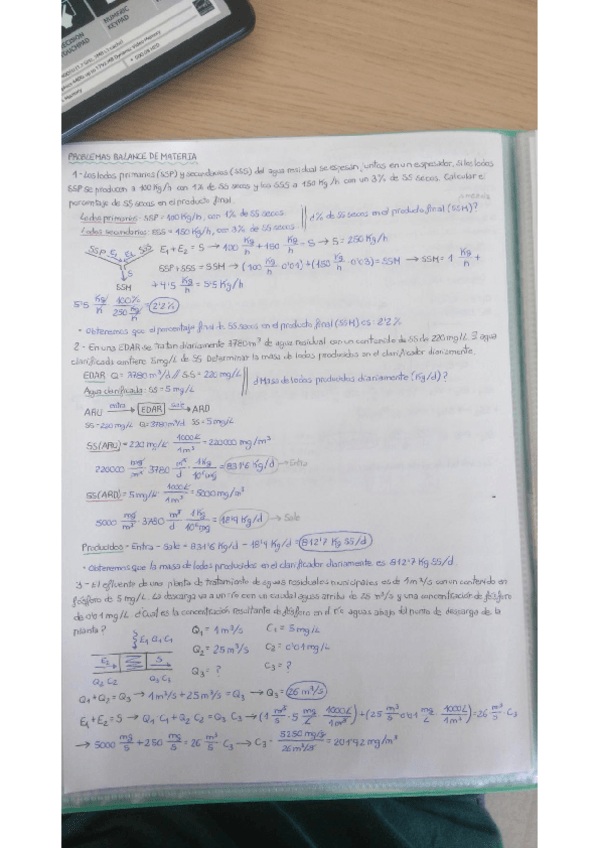 NUMERIC
KEYPAD
TOUCHPAD
PROBLEMAS BALANCE DE MATERIA
1- Los lodos primarios (SSP) y secundarios (SSS) del agua residual se espesan juntos en un espesador, si los lodos
SSP se producen a 100 Kg/h con 1% de SS secos y los SSS a 150 Kg/h con un 3% de SS secos. Calcular el
porcentaje de SS secos en el producto final.
Lodos primarios: SSP = 100 Kg/h, con 1% de SS secos
¿% de SS secos en el producto final (SSM)?
Lodos secundarios: SSS = 150 Kg/h, con 3% de SS secos
SSP E1 E2 SSS E1 + E2 = S → 100 Kg/h + 150 Kg/h = S → S = 250 Kg/h
S
SSM SSP + SSS = SSM → (100 Kg/h · 0'01) + (150 Kg/h · 0'03) = SSM → SSM = 1 Kg/h +
+ 4'5 Kg/h = 5'5 Kg/h
5'5 Kg/h · 100% / 250 Kg/h = 2'2%
· Obtenemos que el porcentaje final de SS secos en el producto final (SSM) es: 2'2%
2- En una EDAR se tratan diariamente 3780 m³ de agua residual con un contenido de SS de 220 mg/L. El agua
clarificada contiene 5 mg/L de SS. Determinar la masa de lodos producidos en el clarificador diariamente.
EDAR Q = 3780 m³/d // SS = 220 mg/L
¿Masa de lodos producidos diariamente (Kg/d)?
Agua clarificada: SS = 5 mg/L
ARU entra → EDAR sale → ARD
SS = 220 mg/L Q = 3780 m³/d SS = 5 mg/L
SS(ARU) = 220 mg/L · 1000 L / 1 m³ = 220000 mg/m³
220000 mg/m³ · 3780 m³/d · 1 Kg / 10⁶ mg = 831'6 Kg/d → Entra
SS(ARD) = 5 mg/L · 1000 L / 1 m³ = 5000 mg/m³
5000 mg/m³ · 3780 m³/d · 1 Kg / 10⁶ mg = 18'9 Kg/d → Sale
Producidos = Entra - Sale = 831'6 Kg/d - 18'9 Kg/d = 812'7 Kg SS/d
· Obtenemos que la masa de lodos producidos en el clarificador diariamente es: 812'7 Kg SS/d.
3- El efluente de una planta de tratamiento de aguas residuales municipales es de 1 m³/s con un contenido en
fósforo de 5 mg/L. La descarga va a un río con un caudal aguas arriba de 25 m³/s y una concentración de fósforo
de 0'01 mg/L. ¿Cuál es la concentración resultante de fósforo en el río aguas abajo del punto de descarga de la
planta?
E1 Q1 C1 Q1 = 1 m³/s C1 = 5 mg/L
E2 S Q2 = 25 m³/s C2 = 0'01 mg/L
Q2 C2 Q3 C3 Q3 = ? C3 = ?
Q1 + Q2 = Q3 → 1 m³/s + 25 m³/s = Q3 → Q3 = 26 m³/s
E1 + E2 = S → Q1 · C1 + Q2 · C2 = Q3 · C3 → (1 m³/s · 5 mg/L · 1000 L / 1 m³) + (25 m³/s · 0'01 mg/L · 1000 L / 1 m³) = 26 m³/s · C3
→ 5000 mg/s + 250 mg/s = 26 m³/s · C3 → C3 = 5250 mg/s / 26 m³/s = 201'92 mg/m³